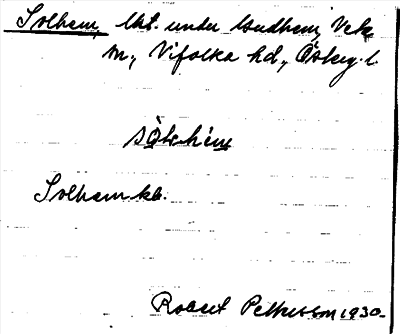 Solhem, lht. under Sudhem, Veta
sn, Vifolka hd, Österg. l.
Solhem kb.
Robert Pettersson 1930.